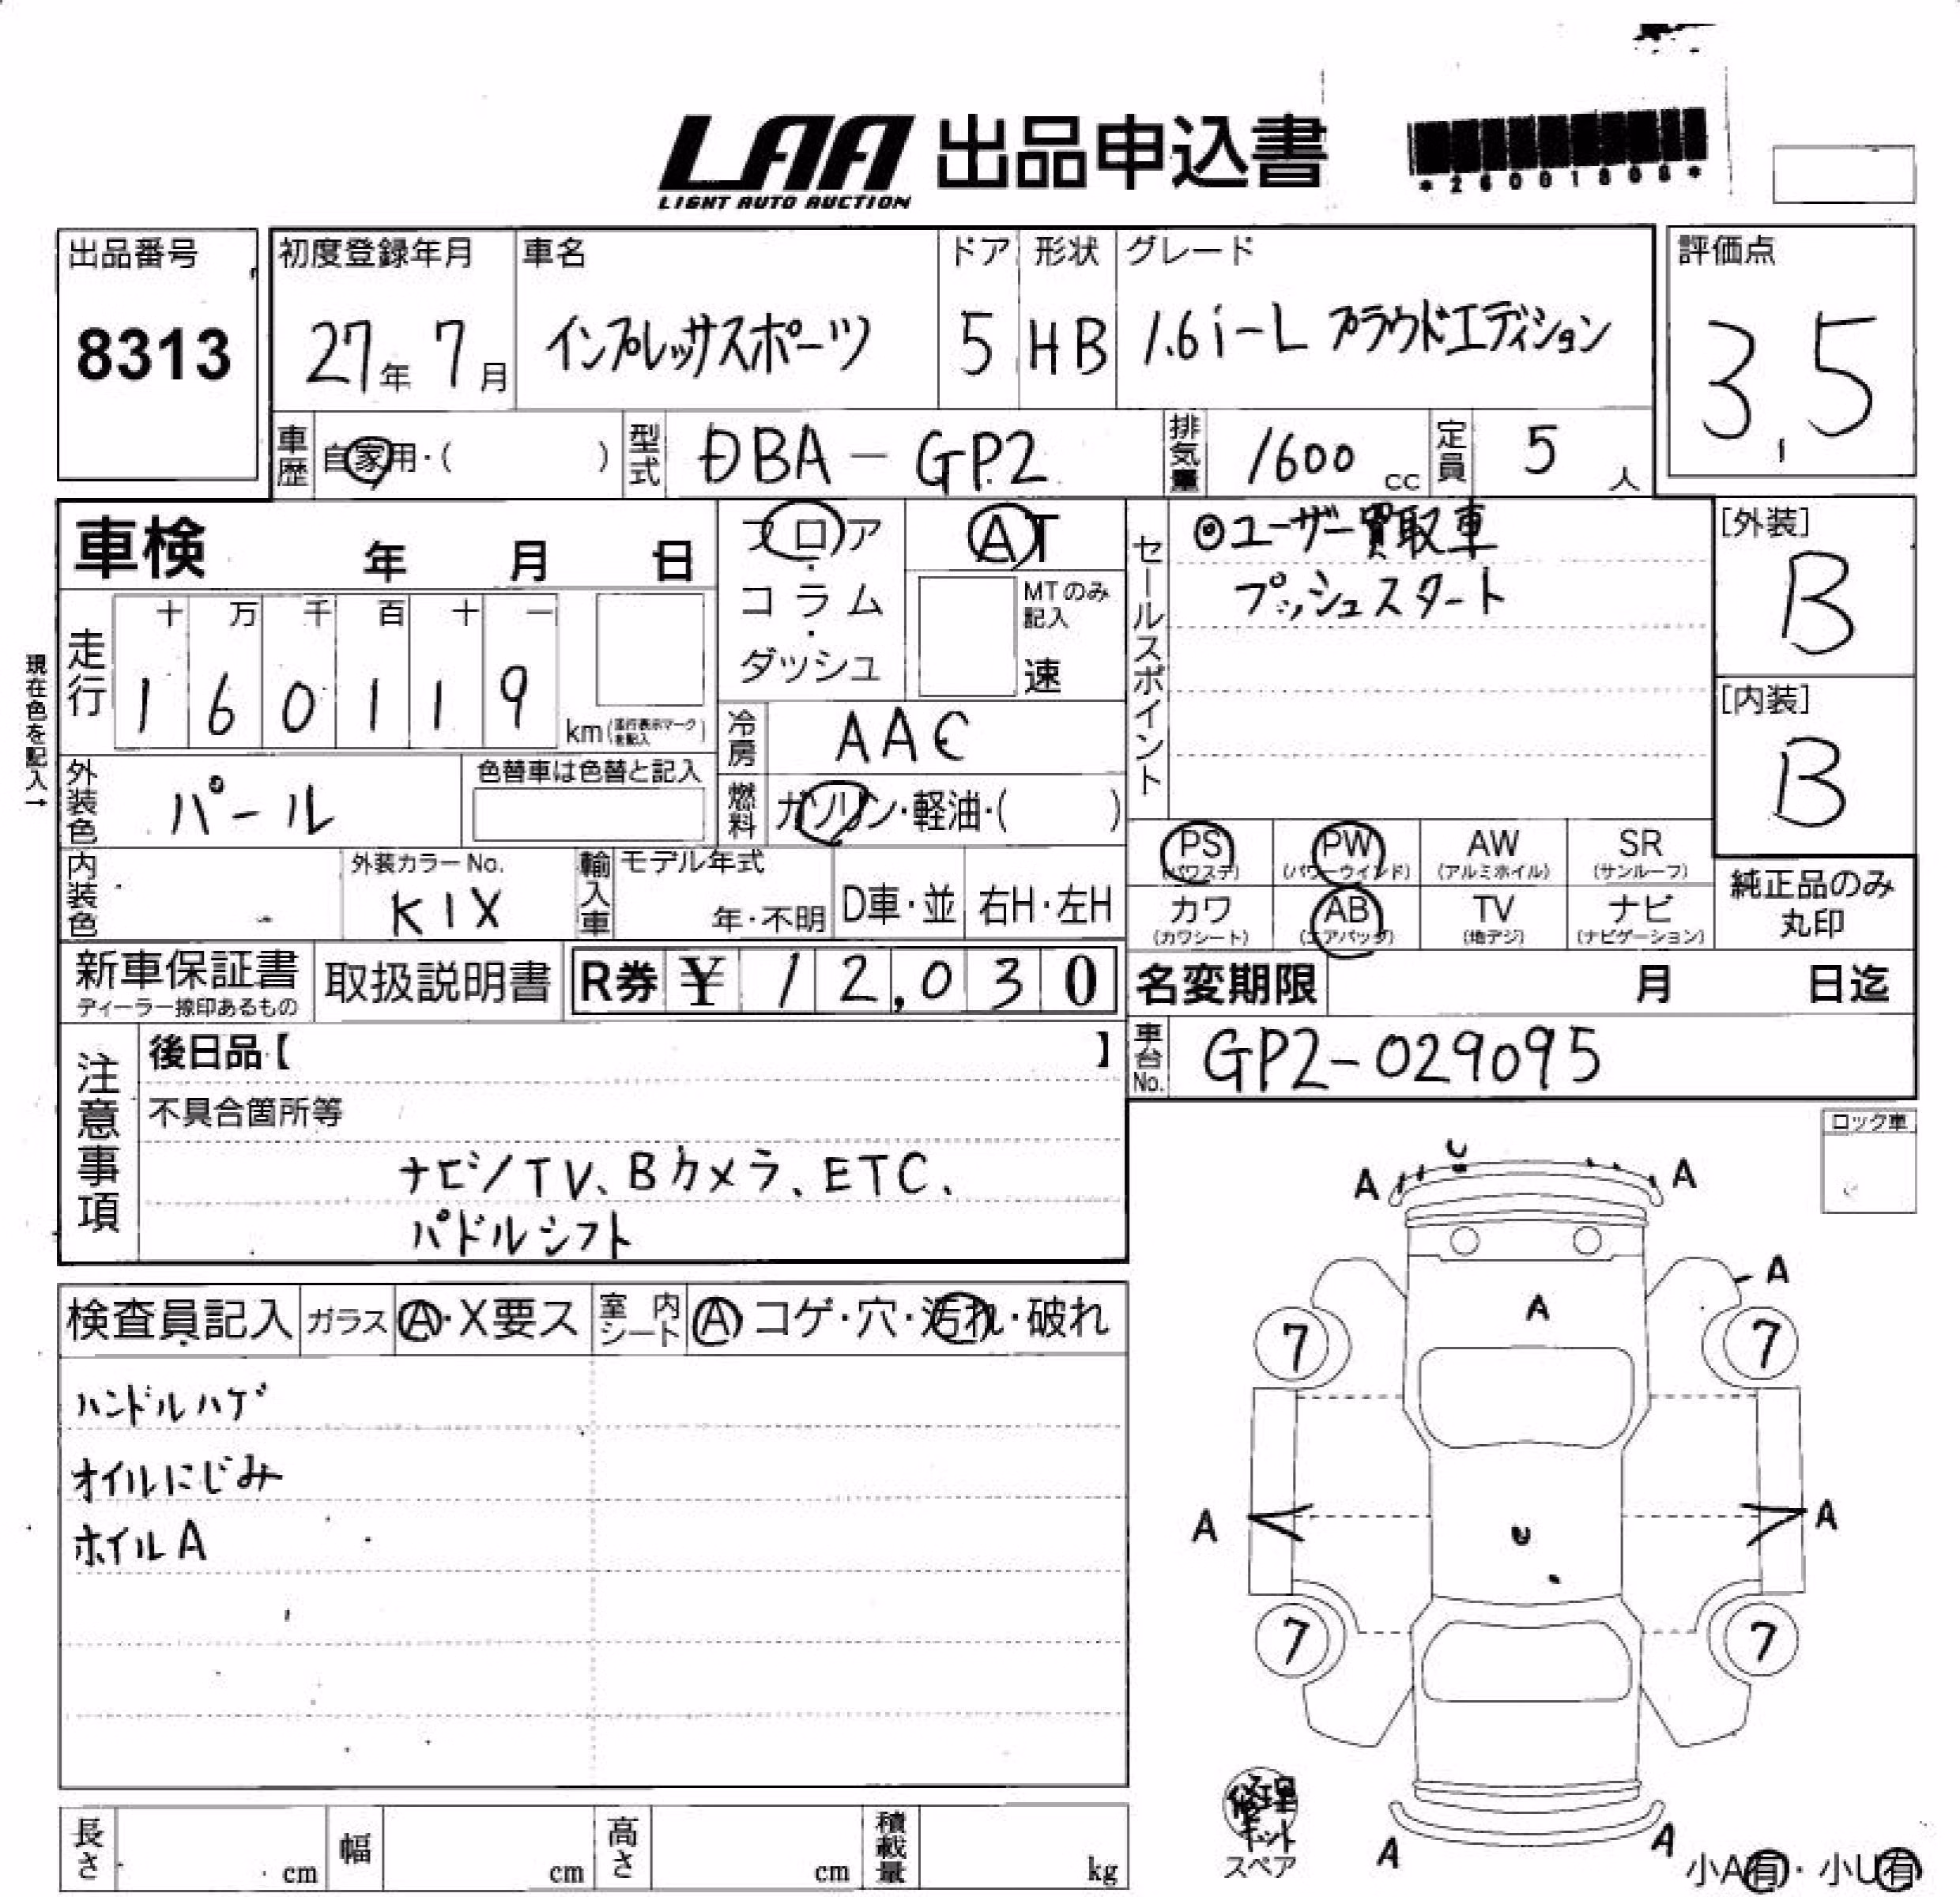 LAA 出品申込書
LIGHT AUTO AUCTION
*26001808*
出品番号
8313
初度登録年月
27年 7月
車名
インプレッサスポーツ
ドア
5
形状
HB
グレード
1.6i-L プラウドエディション
評価点
3.5
車歴 自家用・( )
型式 DBA-GP2
排気量 1600 cc
定員 5 人
車検 年 月 日
フロア・コラム・ダッシュ
AT
MTのみ記入
速
セールスポイント
◎ユーザー買取車
プッシュスタート
[外装]
B
[内装]
B
現在色を記入→
走行
十 万 千 百 十 一
1 6 0 1 1 9 km(走行表示マークを記入)
冷房 AAC
燃料 ガソリン・軽油・( )
外装色 パール
色替車は色替と記入
内装色
外装カラーNo.
K1X
輸入車
モデル年式
年・不明
D車・並
右H・左H
PS (パワステ)
PW (パワーウインド)
AW (アルミホイル)
SR (サンルーフ)
カワ (カワシート)
AB (エアバッグ)
TV (地デジ)
ナビ (ナビゲーション)
純正品のみ丸印
新車保証書
ディーラー捺印あるもの
取扱説明書
R券 ¥ 12,030
名変期限 月 日迄
車台No. GP2-029095
注意事項
後日品【 】
不具合箇所等
ナビ/TV、Bカメラ、ETC、
パドルシフト
ロック車
検査員記入
ガラス A・X要ス
室内シート A コゲ・穴・汚れ・破れ
ハンドルハゲ
オイルにじみ
ホイルA
U
A A
A
A
7 7
A A
U
7 7
A A
修理キット
スペア
小A有・小U有
長さ cm
幅 cm
高さ cm
積載量 kg